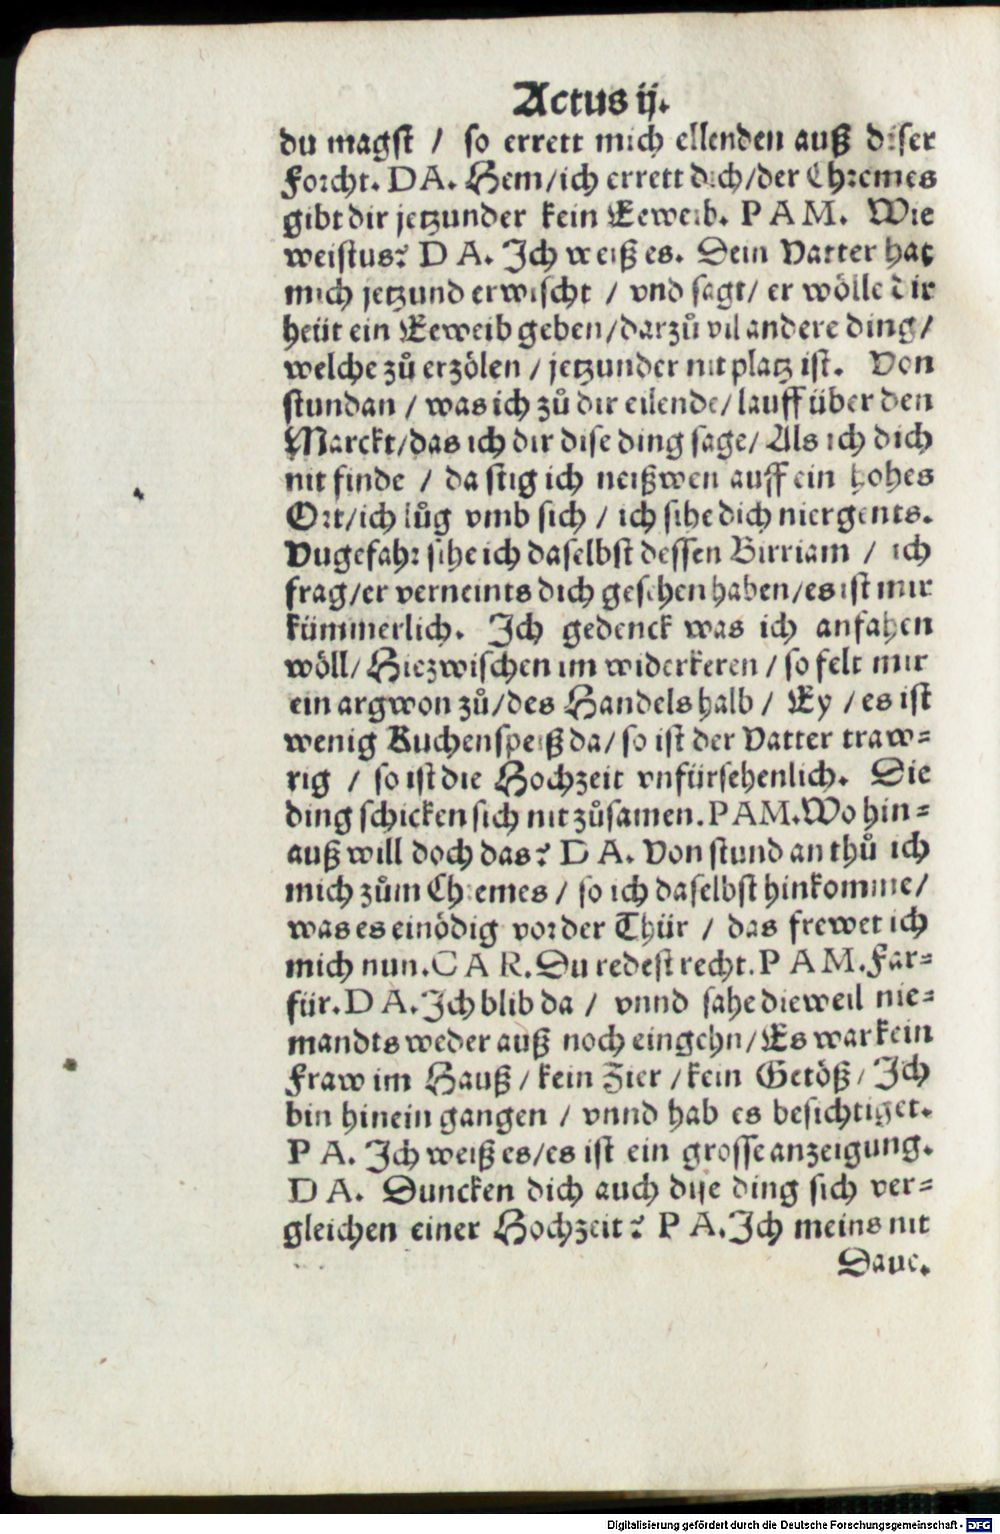 Actus ij.
du magst / so errett mich ellenden auß diser
Forcht. D A. Hem/ich errett dich/der Chremes
gibt dir jetzunder kein Eeweib. P A M. Wie
weistus? D A. Ich weiß es. Dein Vatter hat
mich jetzund erwischt / vnd sagt/ er wölle dir
heüt ein Eeweib geben/darzů vil andere ding/
welche zů erzölen / jetzunder nit platz ist. Von
stundan / was ich zů dir eilende/ lauff über den
Marckt/das ich dir dise ding sage/ Als ich dich
nit finde / da stig ich neißwen auff ein hohes
Ort/ich lůg vmb sich / ich sihe dich niergents.
Vugefahr sihe ich daselbst dessen Birriam / ich
frag/er verneints dich gesehen haben/es ist mir
kümmerlich. Ich gedenck was ich anfahen
wöll/ Hiezwischen im widerkeren / so felt mir
ein argwon zů/des Handels halb / Ey / es ist
wenig Kuchenspeiß da/ so ist der Vatter traw=
rig / so ist die Hochzeit vnfürsehenlich. Die
ding schicken sich nit zůsamen. P AM. Wo hin=
auß will doch das? D A. Von stund an thů ich
mich zům Chremes / so ich daselbst hinkomme/
was es einödig vor der Thür / das frewet ich
mich nun. C A R. Du redest recht. P A M. Far=
für. D A. Ich blib da / vnnd sahe dieweil nie=
mandts weder auß noch eingehn/ Es war kein
Fraw im Hauß / kein Zier / kein Getöß / Ich
bin hinein gangen / vnnd hab es besichtiget.
P A. Ich weiß es/es ist ein grosse anzeigung.
D A. Duncken dich auch dise ding sich ver=
gleichen einer Hochzeit? P A. Ich meins nit
Daue.
Digitalisierung gefördert durch die Deutsche Forschungsgemeinschaft - DFG